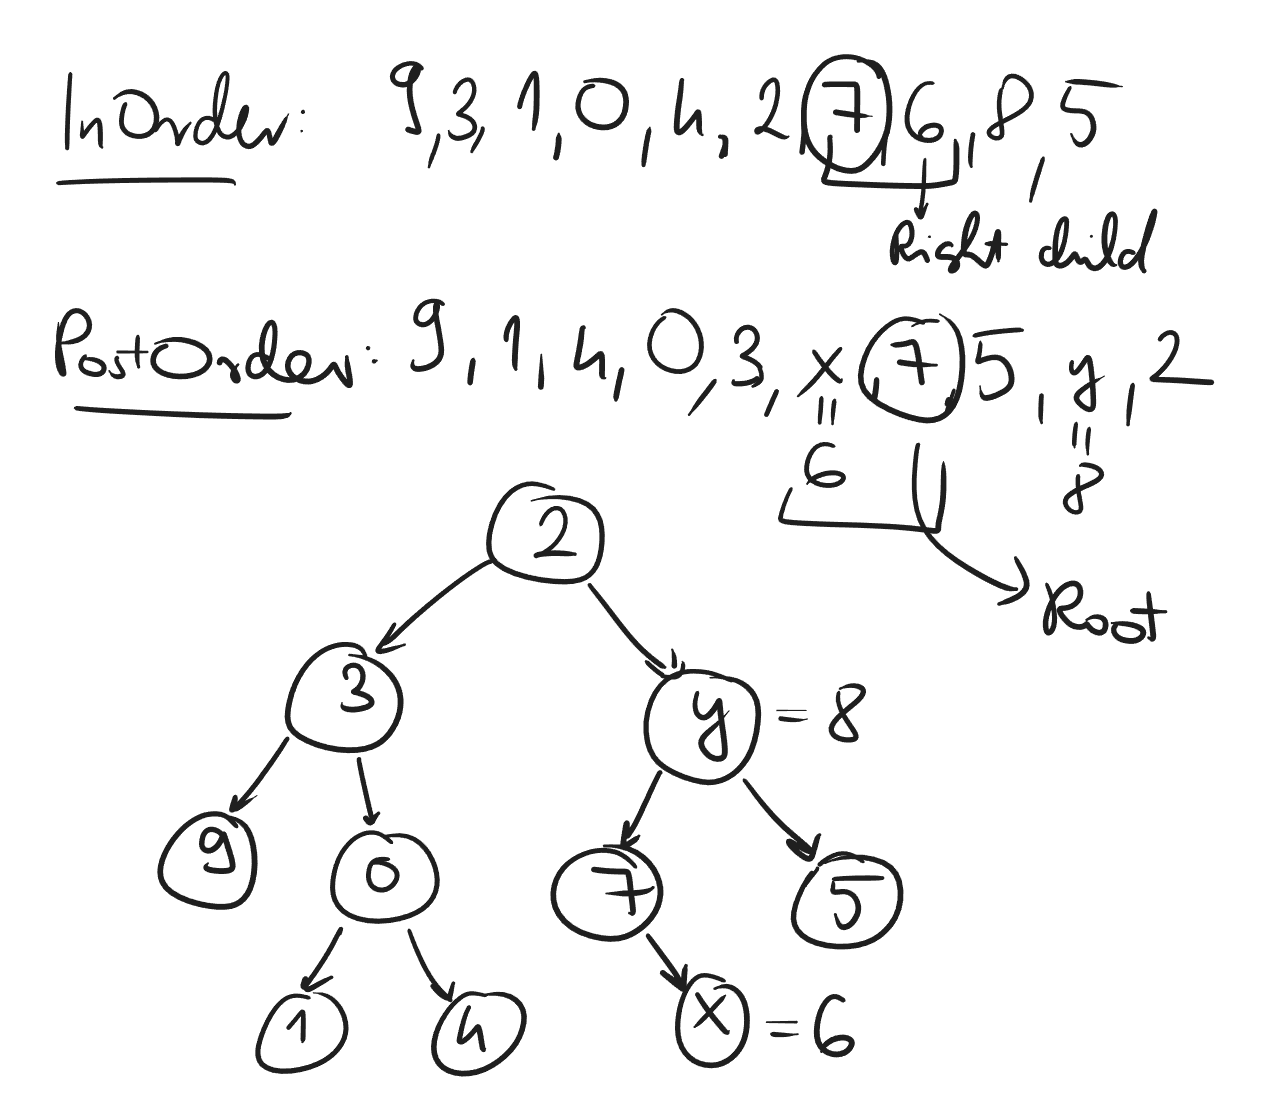 InOrder: 9, 3, 1, 0, 4, 2, 7, 6, 8, 5
Right child
PostOrder: 9, 1, 4, 0, 3, x, 7, 5, y, 2
= 6
= 8
Root
2
3
y = 8
9
0
7
5
1
4
x = 6